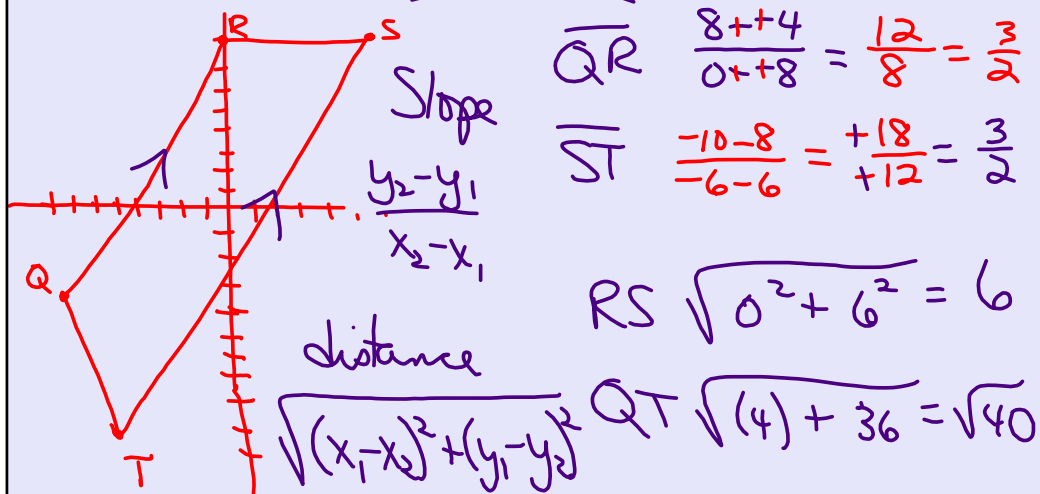 R
S
Q
T
Slope
y₂-y₁ / x₂-x₁
distance
√((x₁-x₂)²+(y₁-y₂)²)
QR 8++4 / 0++8 = 12/8 = 3/2
ST -10-8 / -6-6 = +18/+12 = 3/2
RS √(0²+6²) = 6
QT √((4)+36) = √40